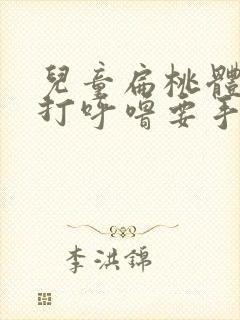 兒童扁桃體
打呼嚕要手
李洪錦